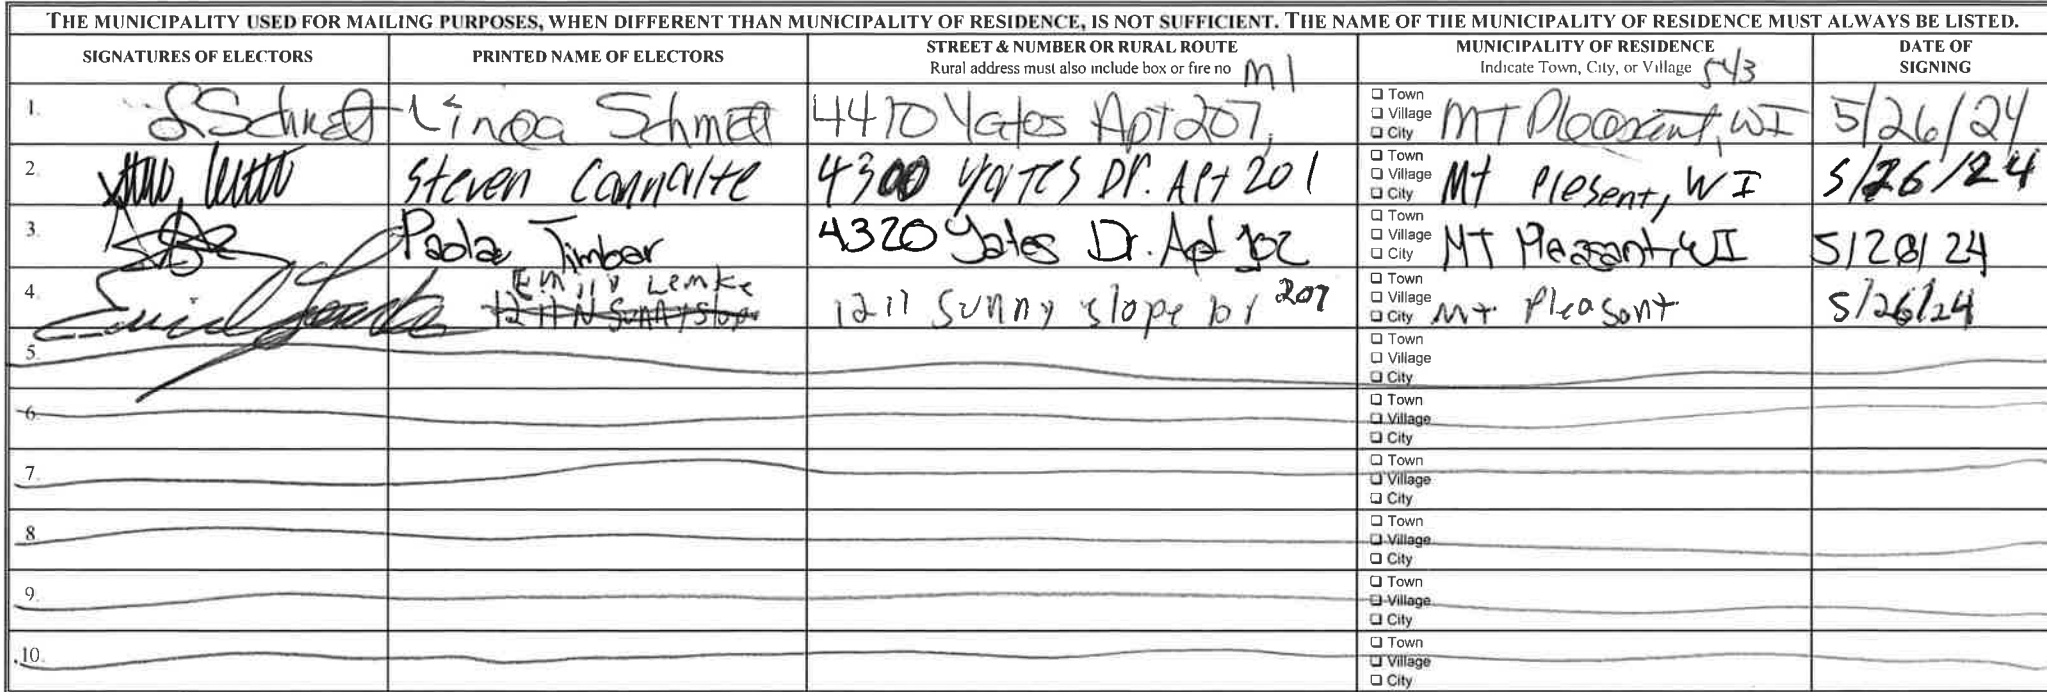 THE MUNICIPALITY USED FOR MAILING PURPOSES, WHEN DIFFERENT THAN MUNICIPALITY OF RESIDENCE, IS NOT SUFFICIENT. THE NAME OF THE MUNICIPALITY OF RESIDENCE MUST ALWAYS BE LISTED.
SIGNATURES OF ELECTORS
PRINTED NAME OF ELECTORS
STREET & NUMBER OR RURAL ROUTE
Rural address must also include box or fire no
MUNICIPALITY OF RESIDENCE
Indicate Town, City, or Village
DATE OF
SIGNING
1. Schmett 4410 Yates Apt 207,
Town
Village
City
MT Pleasant, WI 5/26/24
2. Steven 4300 Yates Dr. Apt 201
Town
Village
City
Mt Plesent, WI 5/26/24
3. Paola Timbar 4320 Yates Dr. Apt
Town
Village
City
MT Pleasant, WI 5/26/24
4. Lemke 1211 Sunny slope Dr 207
Town
Village
City
Mt. Pleasant 5/26/24
5.
Town
Village
City
6.
Town
Village
City
7.
Town
Village
City
8
Town
Village
City
9.
Town
Village
City
10.
Town
Village
City